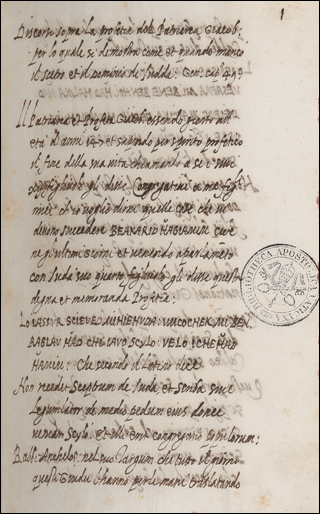 1
Discorso sopra la profetia del Patriarca Giacob:
per lo quale si dimostra come et quando manco
il scetro et il dominio di Iudda: Gen: cap: 49
Il Patriarca et Profeta Giacob essendo gionto all
età d'anni 147 et sapendo per spirito profetico
il fine della sua vita chiamando a se i suoi
figliuoli gli disse Congregative a me figli
miei et io voglio dirvi quelle cose che vi
devino succedere BEAHARID HAIIAMIM cioè
negl'ultimi giorni et venendo a parlamento
con Iuda suo quarto figliuolo gli disse questa
degna et memoranda Profetia
LO IASSUR SCIEVET MIHIEHUDA: UMCOCHEK MI BEN
RAGLAV HAD CHI IAVO SCYLO: VELO ICHEHAD
HAMIM: Che secondo il latino dice
Non recedet Sceptrum de Iuda et scriba sive
Legumlator de medio pedum eius donec
veniat Scylo et illi erit congregatio populorum:
Rabbi Anchelos nel suo Targum che tutto il mondo
questi Giudei l'hanno per le mani translatando
BIBLIOTHECA APOSTOLICA VATICANA